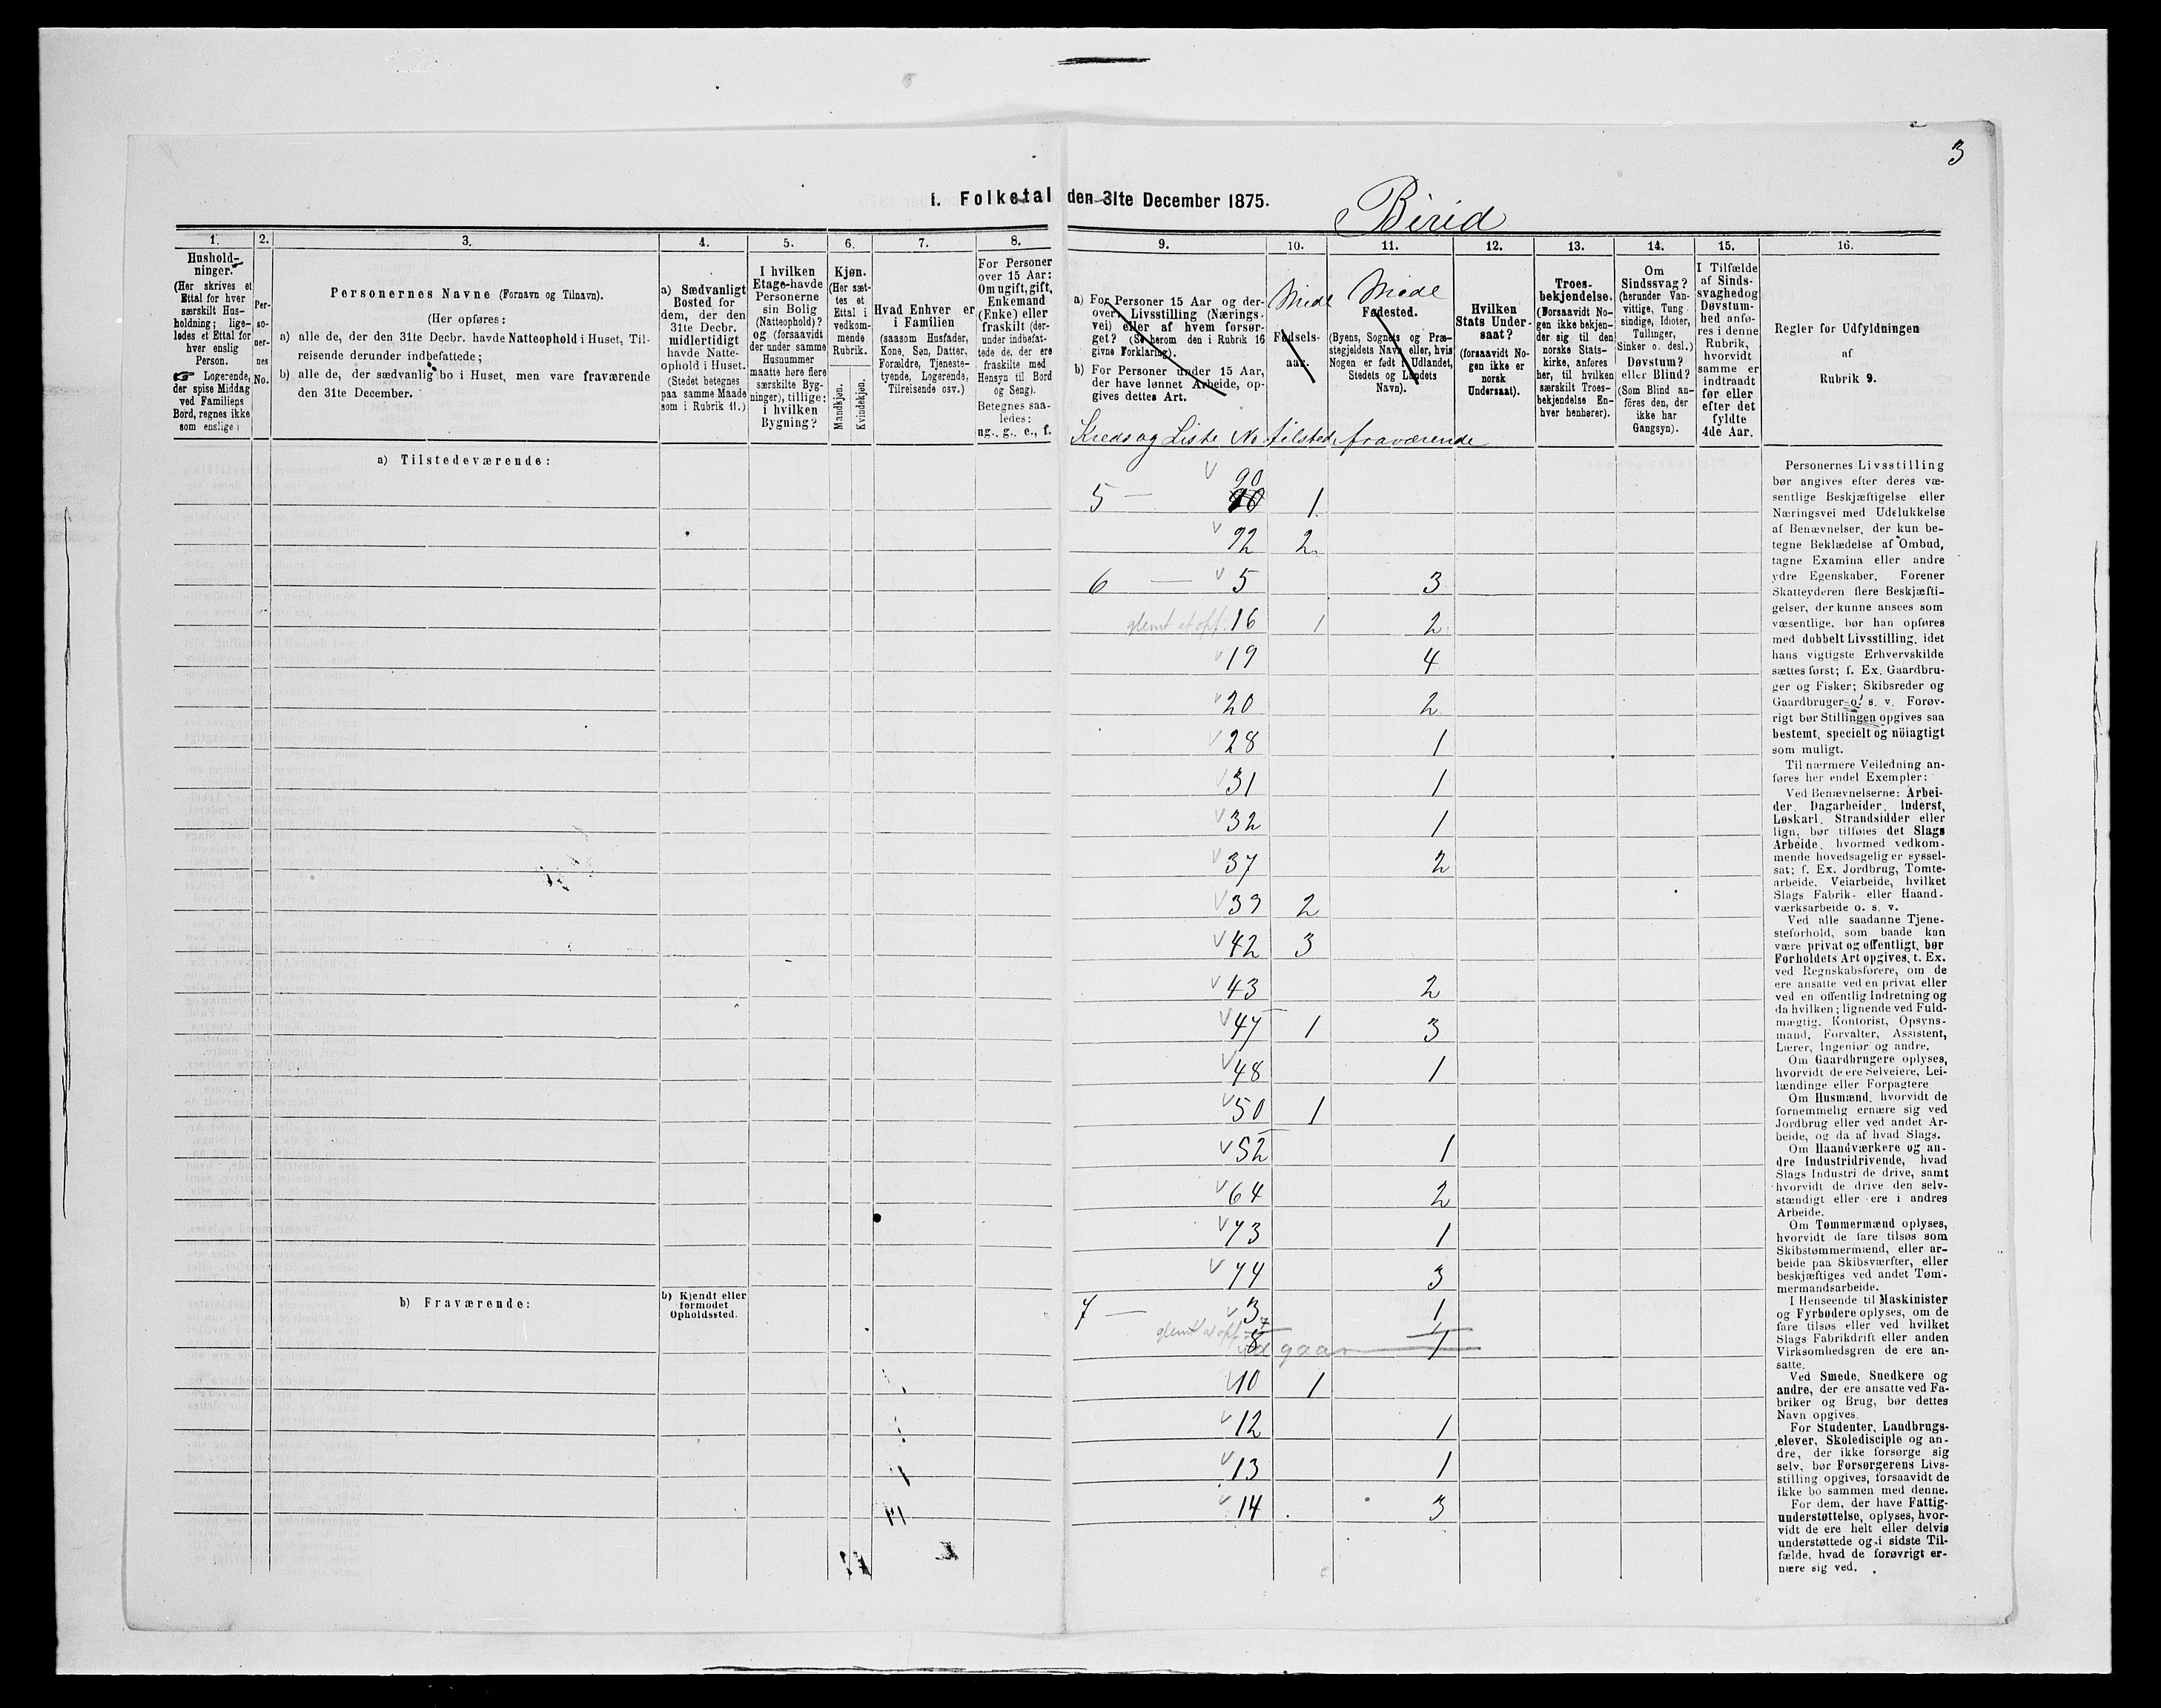 3
I. Folketal den 31te December 1875.
Birid
1.
2.
3.
4.
5.
6.
7.
8.
9.
10.
11.
12.
13.
14.
15.
16.
Hushold-
ninger.
(Her skrives et
Ettal for hver
særskilt Hus-
holdning; lige-
ledes et Ettal for
hver enslig
Person.
☞ Logerende,
der spise Middag
ved Familiens
Bord, regnes ikke
som enslige)
Per-
so-
ner-
nes
No.
Personernes Navne (Fornavn og Tilnavn).
(Her opføres:
a) alle de, der den 31te Decbr. havde Natteophold i Huset, Til-
reisende derunder indbefattede;
b) alle de, der sædvanlig bo i Huset, men vare fraværende
den 31te December.
a) Sædvanligt
Bosted for
dem, der den
31te Decbr.
midlertidigt
havde Natte-
ophold i Huset.
(Stedet betegnes
paa samme Maade
som i Rubrik 11.)
I hvilken
Etage havde
Personerne
sin Bolig
(Natteophold)?
og (forsaavidt
der under samme
Husnummer
maatte høre flere
særskilte Byg-
ninger), tillige:
i hvilken
Bygning?
Kjøn.
(Her sæt-
tes et
Ettal i
vedkom-
mende
Rubrik.
Mandkjøn.
Kvindekjøn.
Hvad Enhver er
i Familien
(saasom Husfader,
Kone, Søn, Datter,
Forældre, Tjeneste-
tyende, Logerende,
Tilreisende osv.)
For Personer
over 15 Aar:
Om ugift, gift,
Enkemand
(Enke) eller
fraskilt (der-
under indbefat-
tede de, der ere
fraskilte med
Hensyn til Bord
og Seng).
Betegnes saa-
ledes:
ug., g., e., f.
a) For Personer 15 Aar og der-
over: Livsstilling (Nærings-
vei) eller af hvem forsør-
get? (Se herom den i Rubrik 16
givne Forklaring).
b) For Personer under 15 Aar,
der have lønnet Arbeide, op-
gives dettes Art.
Medl
Fødsels-
aar.
Medl
Fødested.
(Byens, Sognets og Præ-
stegjeldets Navn eller, hvis
Nogen er født i Udlandet,
Stedets og Landets
Navn).
Hvilken
Stats Under-
saat?
(forsaavidt No-
gen ikke er
norsk
Undersaat).
Troes-
bekjendelse.
(Forsaavidt No-
gen ikke bekjen-
der sig til den
norske Stats-
kirke, anføres
her, til hvilken
særskilt Troes-
bekjendelse En-
hver henhører).
Om
Sindssvag?
(herunder Van-
vittige, Tung-
sindige, Idioter,
Tullinger,
Sinker o. desl.)
Døvstum?
eller Blind?
(Som Blind an-
føres den, der
ikke har
Gangsyn).
I Tilfælde
af Sinds-
svaghed og
Døvstum-
hed anfø-
res i denne
Rubrik,
hvorvidt
samme er
indtraadt
før eller
efter det
fyldte
4de Aar.
Regler for Udfyldningen
af
Rubrik 9.
Kreds og Liste No tilsted. fraværende
a) Tilstedeværende:
90
5 — 10 1
92 2
6 — 5 3
glemt at opf. 16 1 2
19 4
20 2
28 1
31 1
32 1
37 2
39 2
42 3
43 2
47 1 3
48 1
50 1
52 1
64 2
73 1
74 3
b) Fraværende:
b) Kjendt eller
formodet
Opholdssted.
7 — 3 1
glemt at opf. 8 udgaar 1
10 1
12 1
13 1
14 3
Personernes Livsstilling
bør angives efter deres væ-
sentlige Beskjæftigelse eller
Næringsvei med Udelukkelse
af Benævnelser, der kun be-
tegne Beklædelse af Ombud,
tagne Examina eller andre
ydre Egenskaber. Forener
Skatteyderen flere Beskjæfti-
gelser, der kunne ansees som
væsentlige, bør han opføres
med dobbelt Livsstilling, idet
hans vigtigste Erhvervskilde
sættes først; f. Ex. Gaardbru-
ger og Fisker; Skibsreder og
Gaardbruger o. s. v. Forøv-
rigt bør Stillingen opgives saa
bestemt, specielt og nöiagtigt
som muligt.
Til nærmere Veiledning an-
føres her endel Exempler:
Ved Benævnelserne: Arbei-
der, Dagarbeider, Inderst,
Løskarl, Strandsidder eller
lign. bør tilføies det Slags
Arbeide, hvormed vedkom-
mende hovedsagelig er syssel-
sat; f. Ex. Jordbrug, Tomte-
arbeide, Veiarbeide, hvilket
Slags Fabrik- eller Haand-
værksarbeide o. s. v.
Ved alle saadanne Tjene-
steforhold, som baade kan
være privat og offentligt, bør
Forholdets Art opgives, t. Ex.
ved Regnskabsførere, om de
ere ansatte ved en privat eller
ved en offentlig Indretning og
da hvilken; lignende ved Fuld-
mægtig, Kontorist, Opsyns-
mand, Forvalter, Assistent,
Lærer, Ingeniør og andre.
Om Gaardbrugere oplyses,
hvorvidt de ere Selveiere, Lei-
lændinge eller Forpagtere.
Om Husmænd, hvorvidt de
fornemmelig ernære sig ved
Jordbrug eller ved andet Ar-
beide, og da af hvad Slags.
Om Haandværkere og an-
dre Industridrivende, hvad
Slags Industri de drive, samt
hvorvidt de drive den selv-
stændigt eller ere i andres
Arbeide.
Om Tømmermænd oplyses,
hvorvidt de fare tilsøs som
Skibstømmermænd, eller ar-
beide paa Skibsværfter, eller
beskjæftiges ved andet Tøm-
mermandsarbeide.
I Henseende til Maskinister
og Fyrbødere oplyses, om de
fare tilsøs eller ved hvilket
Slags Fabrikdrift eller anden
Virksomhedsgren de ere an-
satte.
Ved Smede, Snedkere og
andre, der ere ansatte ved Fa-
briker og Brug, bør dettes
Navn opgives.
For Studenter, Landbrugs-
elever, Skoledisciple og an-
dre, der ikke forsørge sig
selv, bør Forsørgerens Livs-
stilling opgives, forsaavidt de
ikke bo sammen med denne.
For dem, der have Fattig-
understøttelse, oplyses, hvor-
vidt de ere helt eller delvis
understøttede og i sidste Til-
fælde, hvad de forøvrigt er-
nære sig ved.